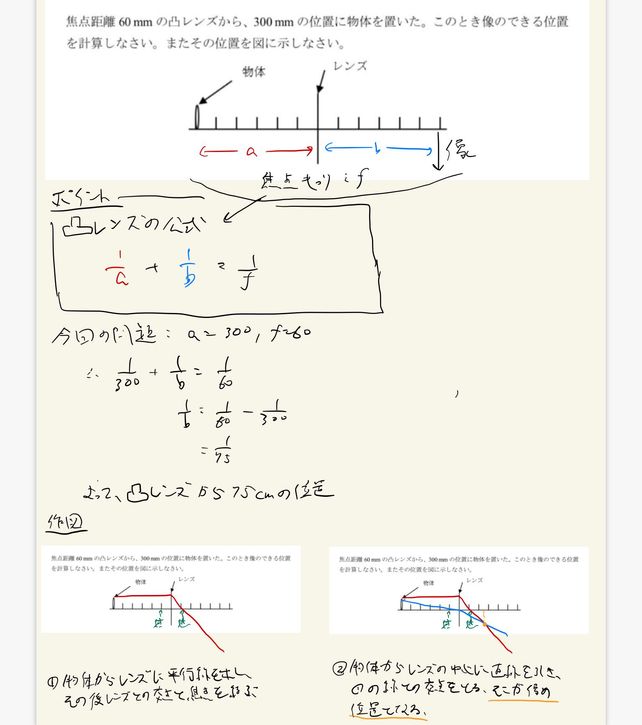 焦点距離 60 mm の凸レンズから、300 mm の位置に物体を置いた。このとき像のできる位置
を計算しなさい。またその位置を図に示しなさい。
物体
レンズ
a
b
像
焦点きょり : f
ポイント
凸レンズの公式
1/a + 1/b = 1/f
今回の問題: a = 300, f=60
∴ 1/300 + 1/b = 1/60
1/b = 1/60 - 1/300
= 1/75
よって、凸レンズから 75cmの位置
作図
焦点距離 60 mm の凸レンズから、300 mm の位置に物体を置いた。このとき像のできる位置
を計算しなさい。またその位置を図に示しなさい。
物体
レンズ
① 物体からレンズに平行線を出し
その後レンズとの交点と、焦点を結ぶ
焦点距離 60 mm の凸レンズから、300 mm の位置に物体を置いた。このとき像のできる位置
を計算しなさい。またその位置を図に示しなさい。
物体
レンズ
② 物体からレンズの中心に直線を引き、
①の線との交点をとる。そこが像の
位置となる。